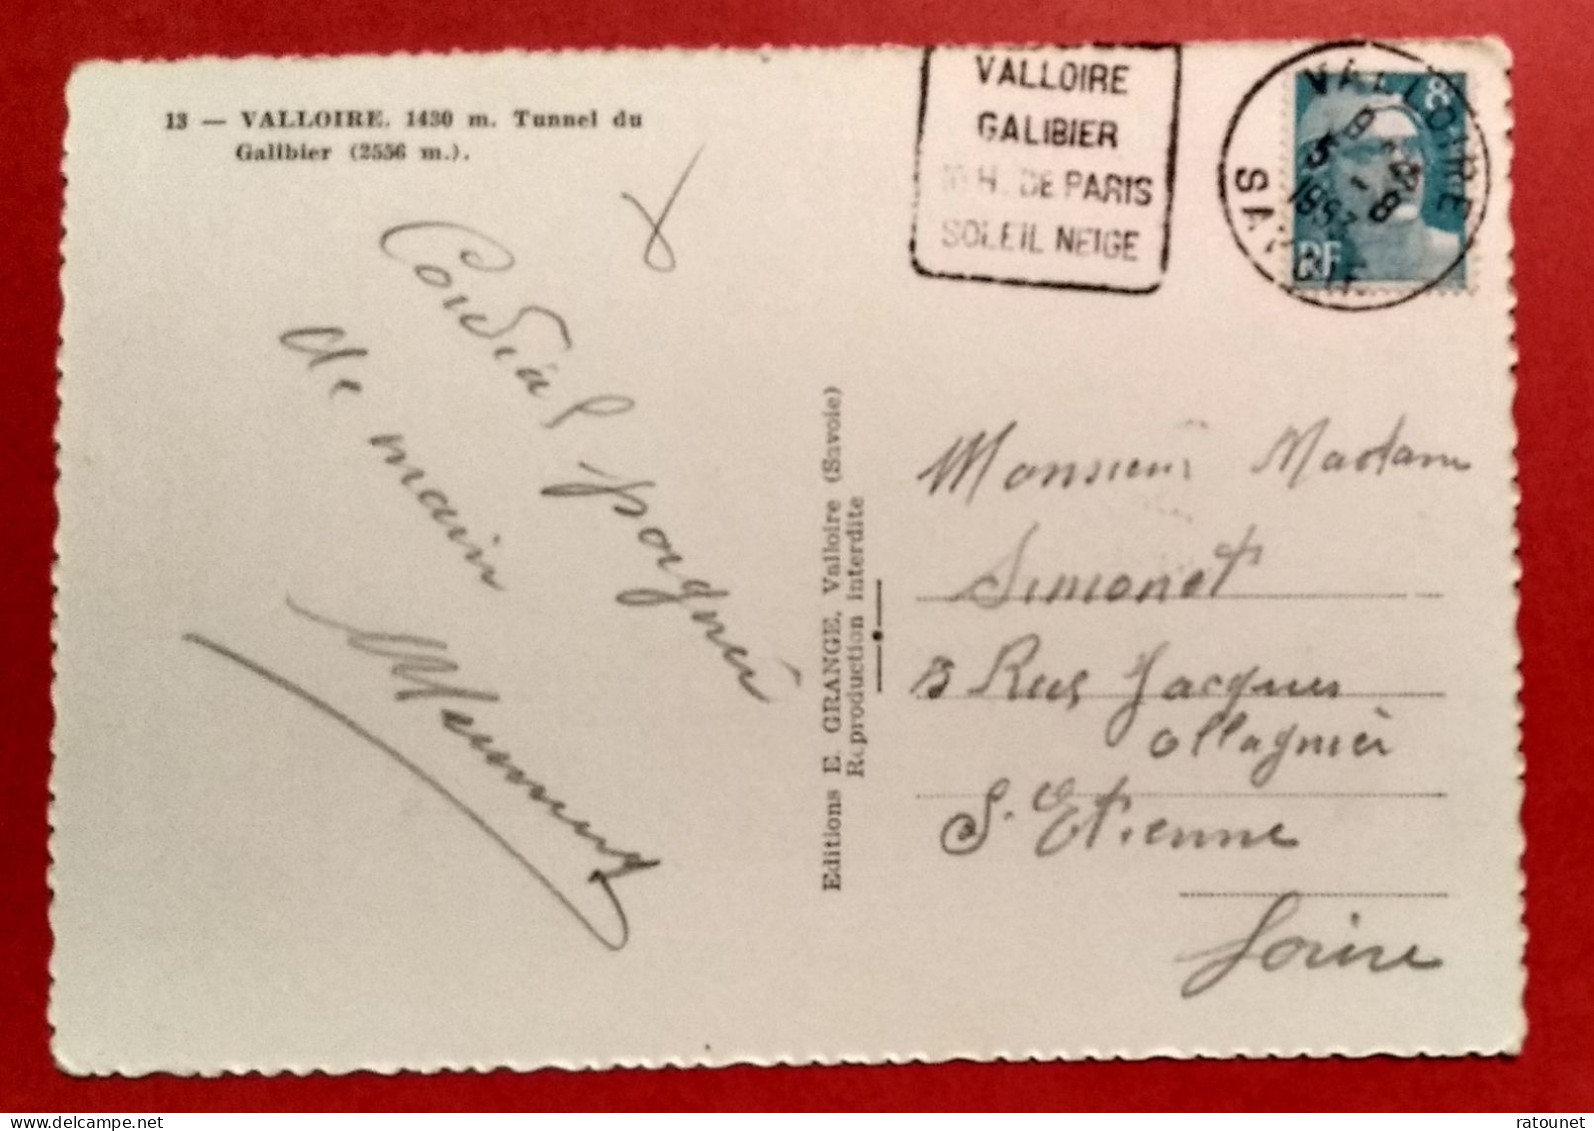 13 — VALLOIRE. 1430 m. Tunnel du
Galibier (2556 m.).
Cordial poignée
de main
VALLOIRE
GALIBIER
H. DE PARIS
SOLEIL NEIGE
VALLOIRE
SAVOIE
8
RF
Editions E. GRANGE, Valloire (Savoie)
Reproduction interdite
Monsieur Madame
Simonet
3 Rue Jacques
ollagnier
St. Etienne
Loire
www.delcampe.net
ratounet